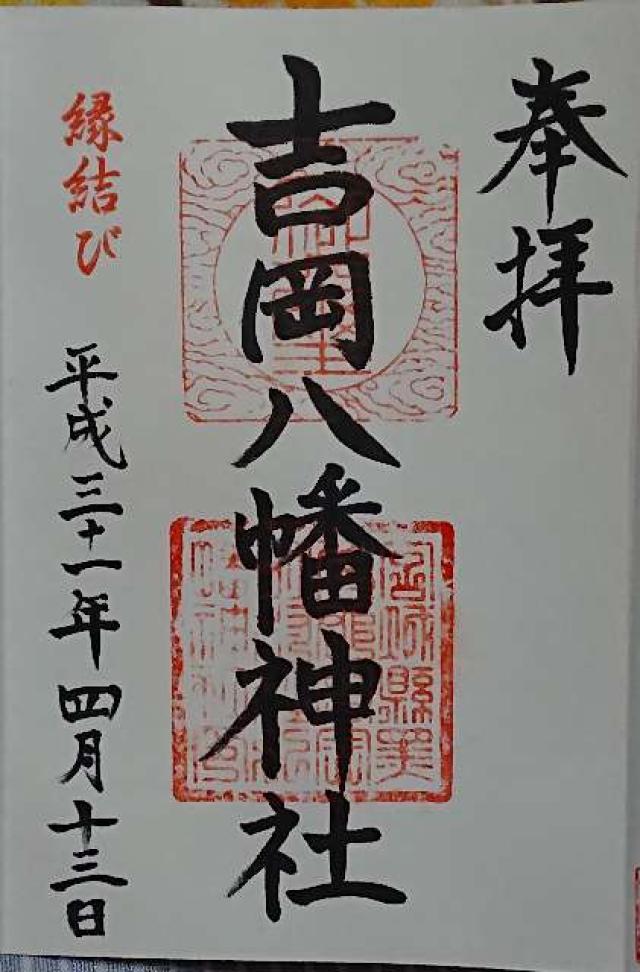 奉拝
吉岡八幡神社
縁結び
平成三十一年四月十三日